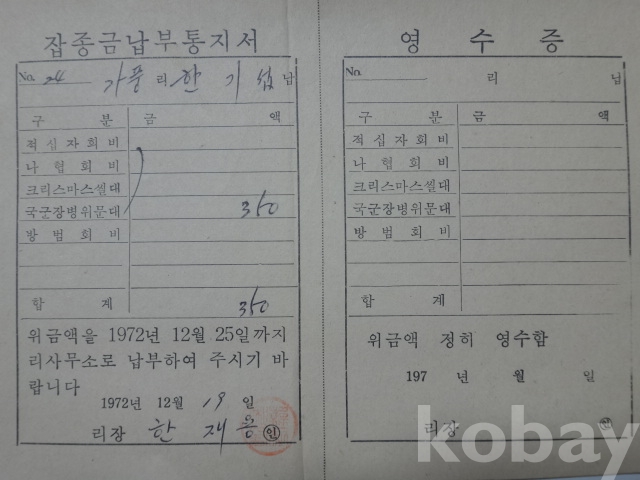 잡종금납부통지서
No. 24 가풍 리 한 기 섭 납
구 분 금 액
적십자회비
나협회비
크리스마스씰대
국군장병위문대 350
방범회비
합 계 350
위금액을 1972년 12월 25일까지
리사무소로 납부하여 주시기 바
랍니다
1972년 12월 19일
리장 한 재 용 ㊞
영 수 증
No. 리 납
구 분 금 액
적십자회비
나협회비
크리스마스씰대
국군장병위문대
방범회비
합 계
위금액 정히 영수함
197 년 월 일
리장 ㊞
kobay